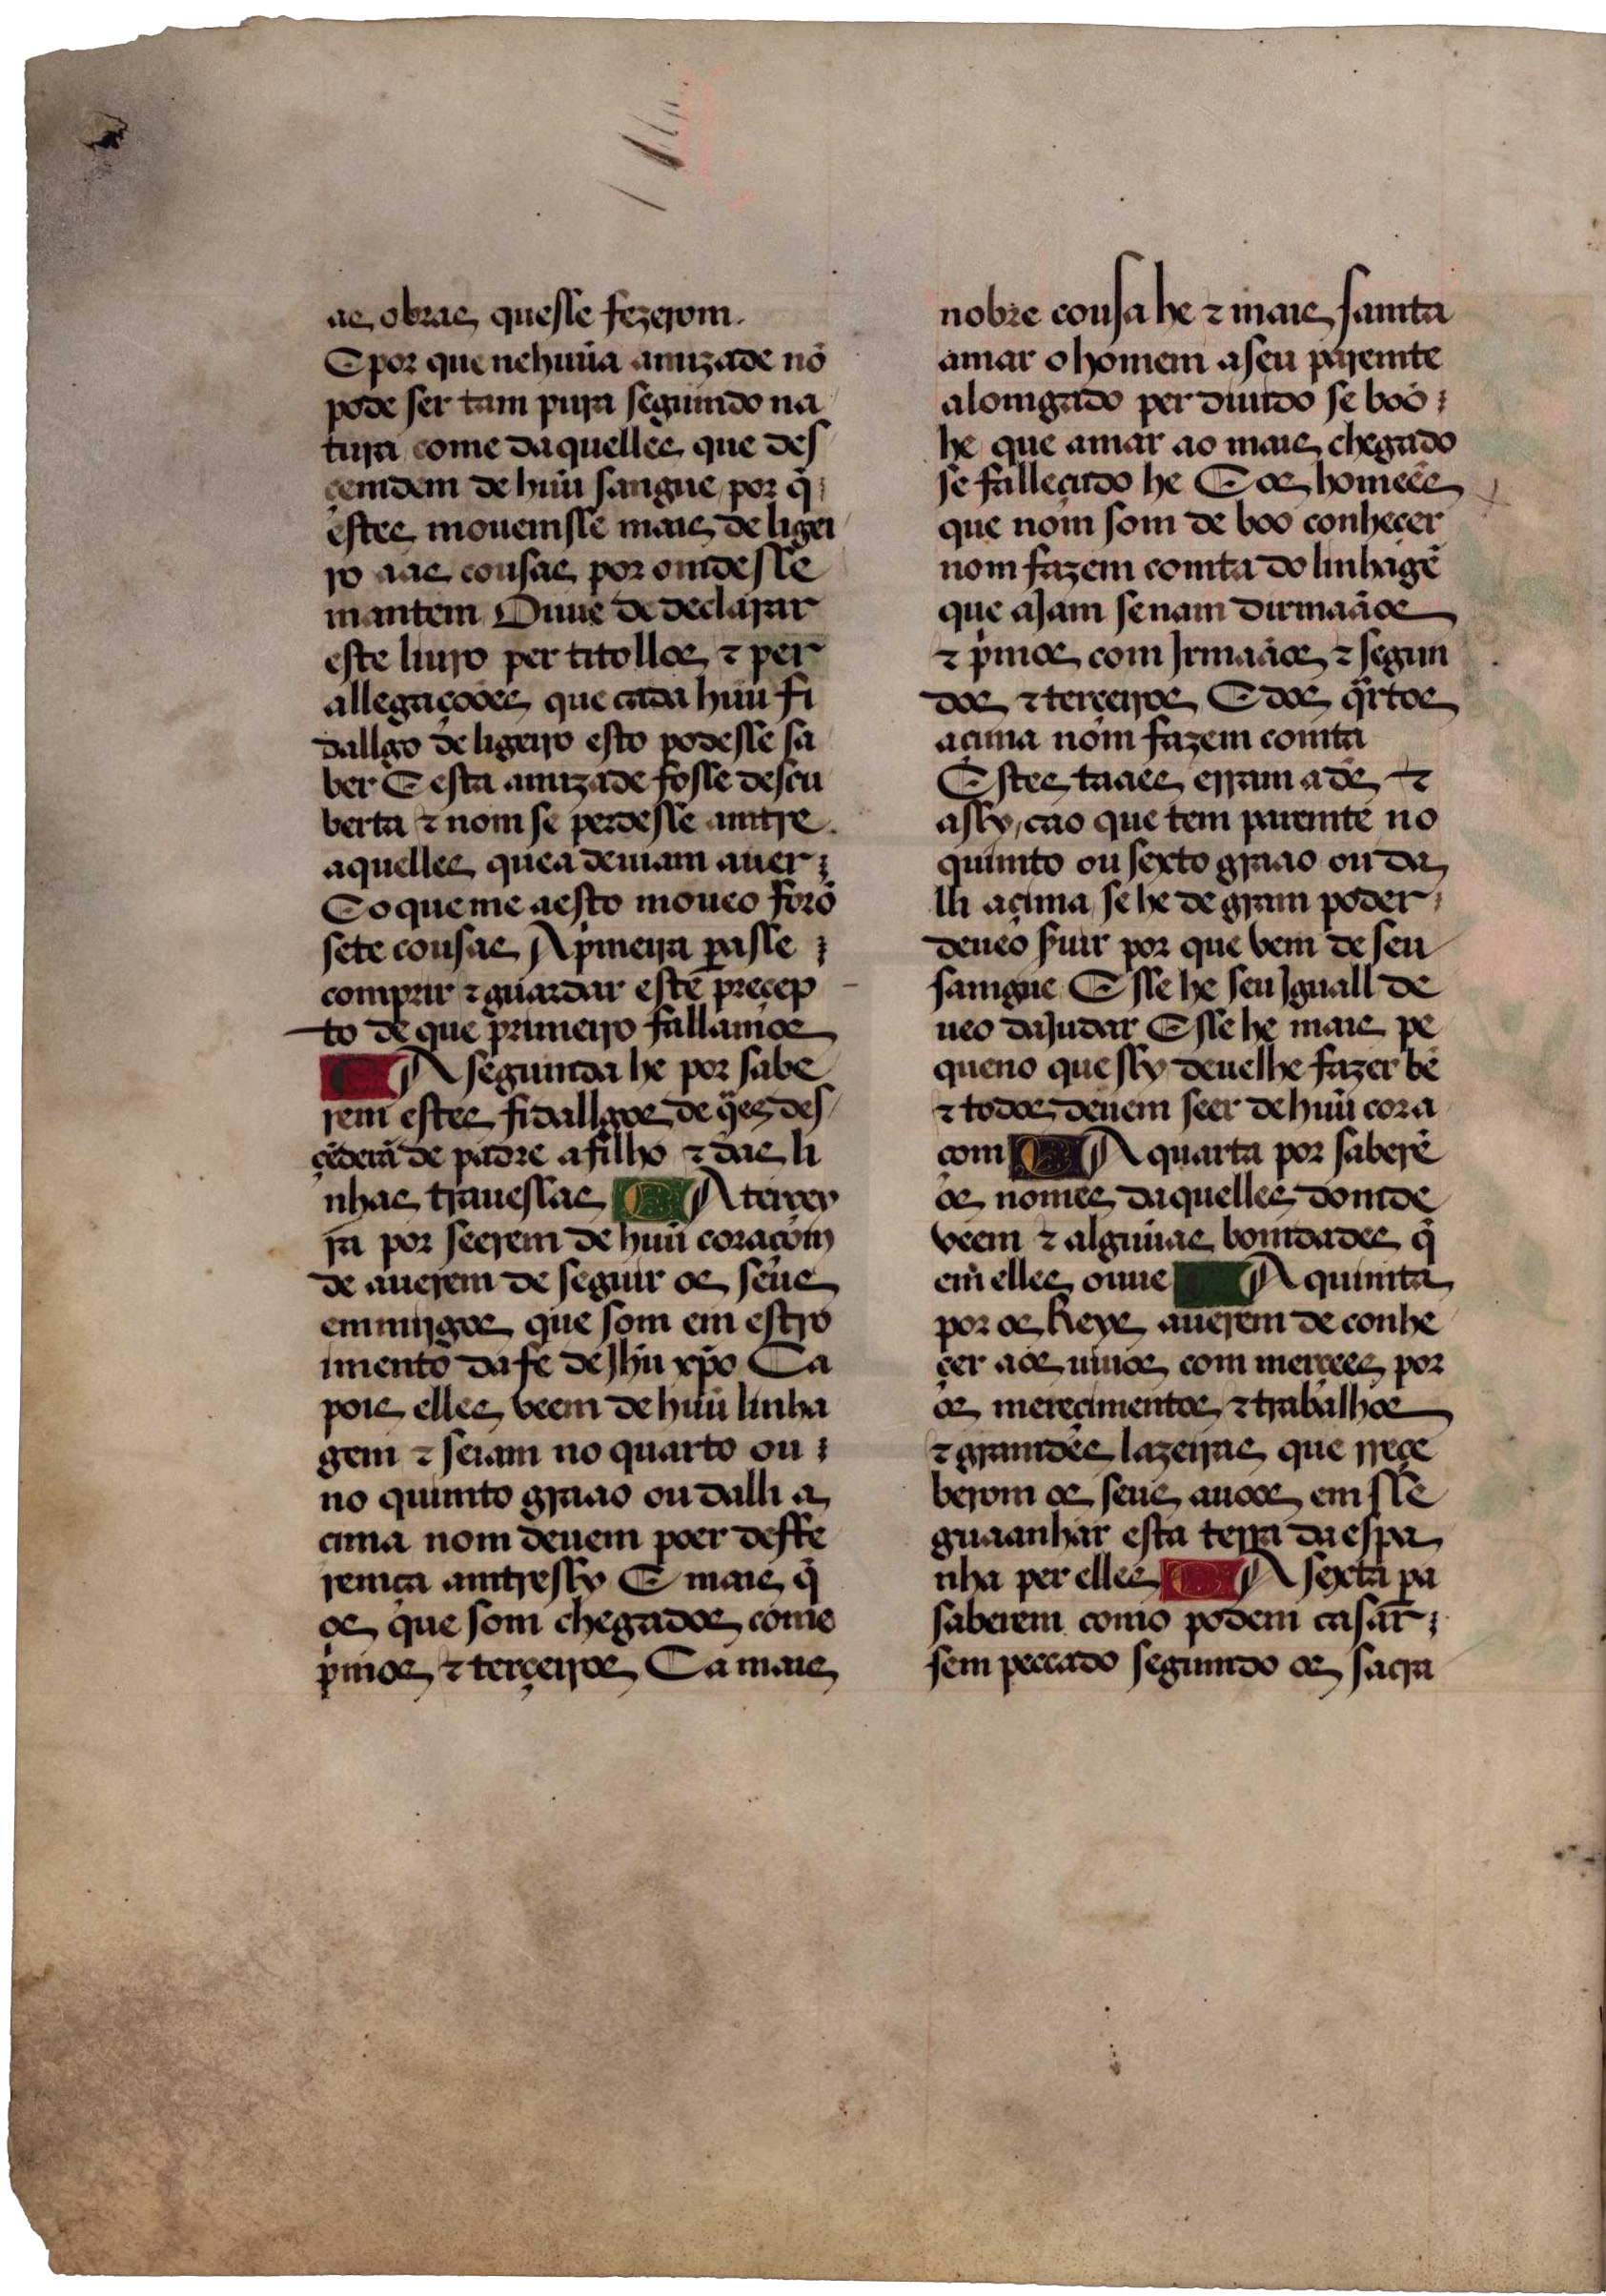 as obras quesse fezerom.
E por que nehuũa amizade nõ
pode ser tam pura segundo na
tura come daquelles que des
çemdem de huũ sangue por q̃
estes mouemsse mais de ligei
ro aas cousas por omdesse
mantem Ouue de declarar
este liuro per titollos ⁊ per
allegaçoões que cada huũ fi
dallgo de ligeiro esto podesse sa
ber E esta amizade fosse descu
berta ⁊ nom se perdesse amtre
aquelles que a deuiam auer ;
E o que me a esto moueo forõ
sete cousas A pͥmeira ꝑasse ;
comprir ⁊ guardar este preçep
to de que primeiro fallamos
A segumda he por sabe
rem estes fidallgos de q̃es des
çẽderã de padre a filho ⁊ das li
nhas trauessas A terçey
ra por seerem de huũ coraçom
de auerem de seguir os seus
emmijgos que som em estro
imento da fe de Jhũ xp̃o Ca
pois elles veem de huũ linha
gem ⁊ seiam no quarto ou ;
no quimto graao ou dalli a
cima nom deuem poer deffe
remça amtressy E mais q̃
os que som chegados como
pͥmos ⁊ terçeiros Ca mais
nobre cousa he ⁊ mais samta
amar o homem a seu paremte
alomgado per diuido se boõ ;
he que amar ao mais chegado
se falleçido he E os homeẽs
que nom som de boo conheçer
nom fazem comta do linhagẽ
que aJam senam dirmaãos
⁊ pͥmos com Jrmaãos ⁊ segun
dos ⁊ terçeiros E dos q̃rtos
açima nom fazem comta
Estes taaes erram a ds̃ ⁊
assy, ca o que tem paremte no
quimto ou sexto graao ou da
lli açima se he de gram poder
deueo s̃uir por que vem de seu
samgue E sse he seu Jguall de
ueo daJudar E sse he mais pe
queno que ssy deuelhe fazer bẽ
⁊ todos deuem seer de huũ cora
çom A quarta por saberẽ
os nomes daquelles domde
veem ⁊ alguũas bomdades q̃
em elles ouue A quimta
por os Reys auerem de conhe
çer aos uiuos com merçees por
os mereçimentos ⁊ trabalhos
⁊ gramdes lazeiras que rreçe
berom os seus auoos em sse
guaanhar esta terra da espa
nha per elles A sexta pa
saberem como podem casar ;
sem peccado segumdo os sacra